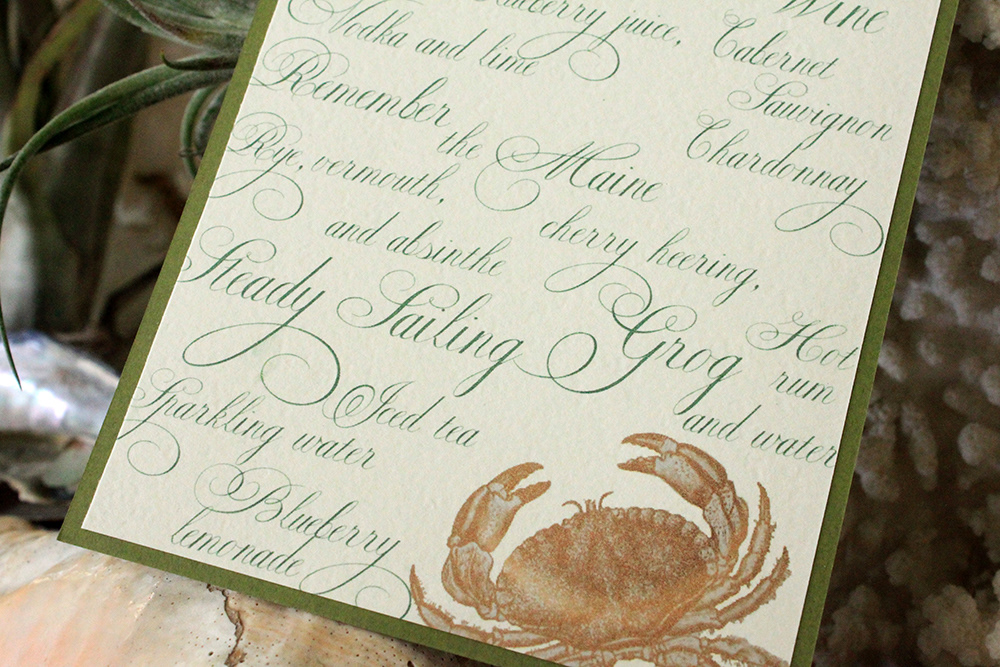 Blueberry juice,
Vodka and lime
Wine
Cabernet
Sauvignon
Chardonnay
Remember
the Maine
Rye, vermouth,
cherry heering,
and absinthe
Steady Sailing Grog
Hot
rum
and water
Iced tea
Sparkling water
Blueberry
lemonade